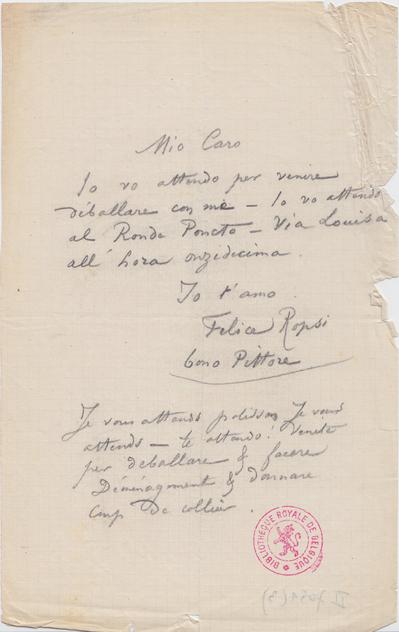 Mio Caro
Io vo attendo per venire
déballare con me – Io vo attendo
al Rondo Poncto – Via Louisa
all' hora onzedecima.
Io t'amo.
Felice Ropsi
bono Pittore
Je vous attends polisson Je vous
attends – te attendo! Venite
per deballare & facere
Déménagement & donnare
coup de collier.
BIBLIOTHÈQUE ROYALE DE BELGIQUE